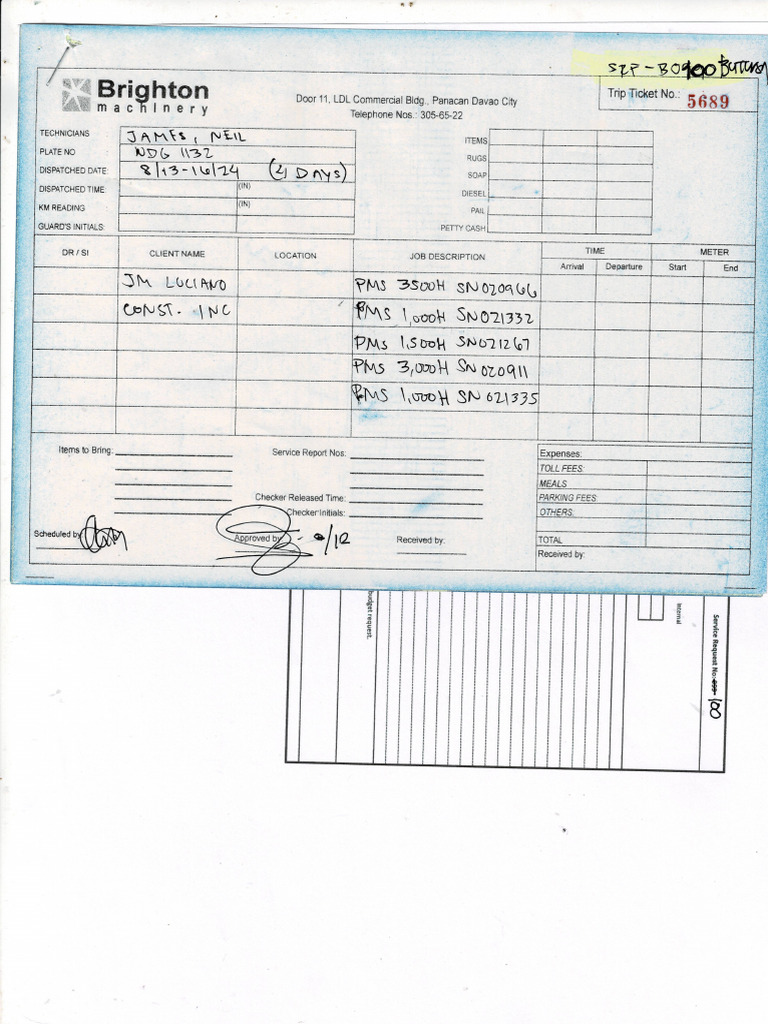 Brighton
machinery
Door 11, LDL Commercial Bldg., Panacan Davao City
Telephone Nos.: 305-65-22
Trip Ticket No.: 5689
TECHNICIANS JAMES, NEIL
PLATE NO NDG 1132
DISPATCHED DATE: 8/13-16/24 (4 DAYS)
DISPATCHED TIME: (IN)
KM READING (IN)
GUARD'S INITIALS:
ITEMS
RUGS
SOAP
DIESEL
PAIL
PETTY CASH
DR / SI CLIENT NAME LOCATION JOB DESCRIPTION TIME METER
Arrival Departure Start End
JM LUCIANO PMS 3500H SN020966
CONST. INC PMS 1,000H SN021332
PMS 1,500H SN021267
PMS 3,000H SN020911
PMS 1,000H SN021335
Items to Bring:
Service Report Nos:
Checker Released Time:
Checker Initials:
Scheduled by
Approved by: /12
Received by:
Expenses:
TOLL FEES:
MEALS
PARKING FEES:
OTHERS:
TOTAL
Received by:
budget request.
Internal
Service Request No. 100